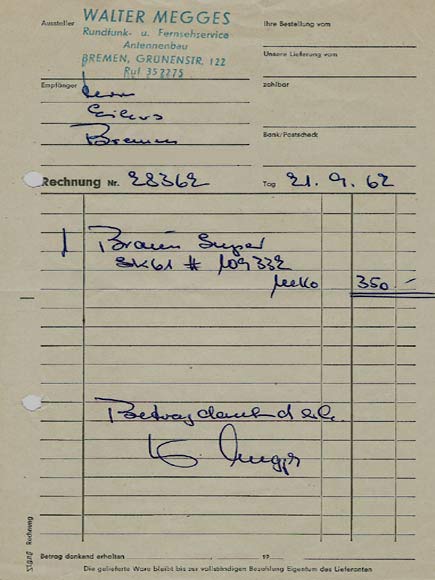 Aussteller
WALTER MEGGES
Rundfunk- u. Fernsehservice
Antennenbau
BREMEN, GRÜNENSTR. 122
Ruf 352275
Ihre Bestellung vom
Unsere Lieferung vom
zahlbar
Bank/Postscheck
Empfänger Herrn
Eilers
Bremen
Rechnung Nr. 28362 Tag 21. 9. 62
1 Braun Super
SK61 # 109332
350.-
Betrag dankend erh.
W. Megges
Betrag dankend erhalten 19
Die gelieferte Ware bleibt bis zur vollständigen Bezahlung Eigentum des Lieferanten
Rechnung